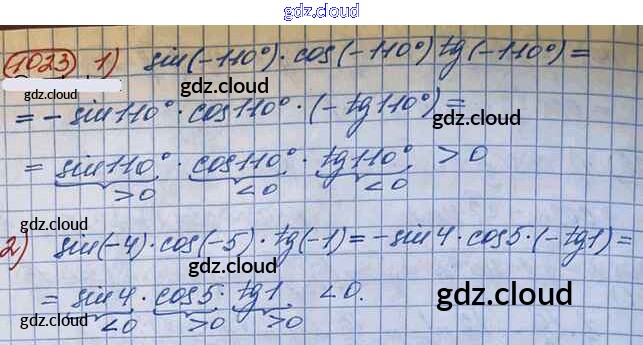 gdz.cloud
1023 1) sin(-110°)·cos(-110°)tg(-110°)=
gdz.cloud
= -sin110°·cos110°·(-tg110°)=
gdz.cloud
gdz.cloud
= sin110°·cos110°·tg110° >0
>0 <0 <0
gdz.cloud
2) sin(-4)·cos(-5)·tg(-1)=-sin4·cos5·(-tg1)=
gdz.cloud
= sin4·cos5·tg1 <0.
gdz.cloud
<0 >0 >0
gdz.cloud